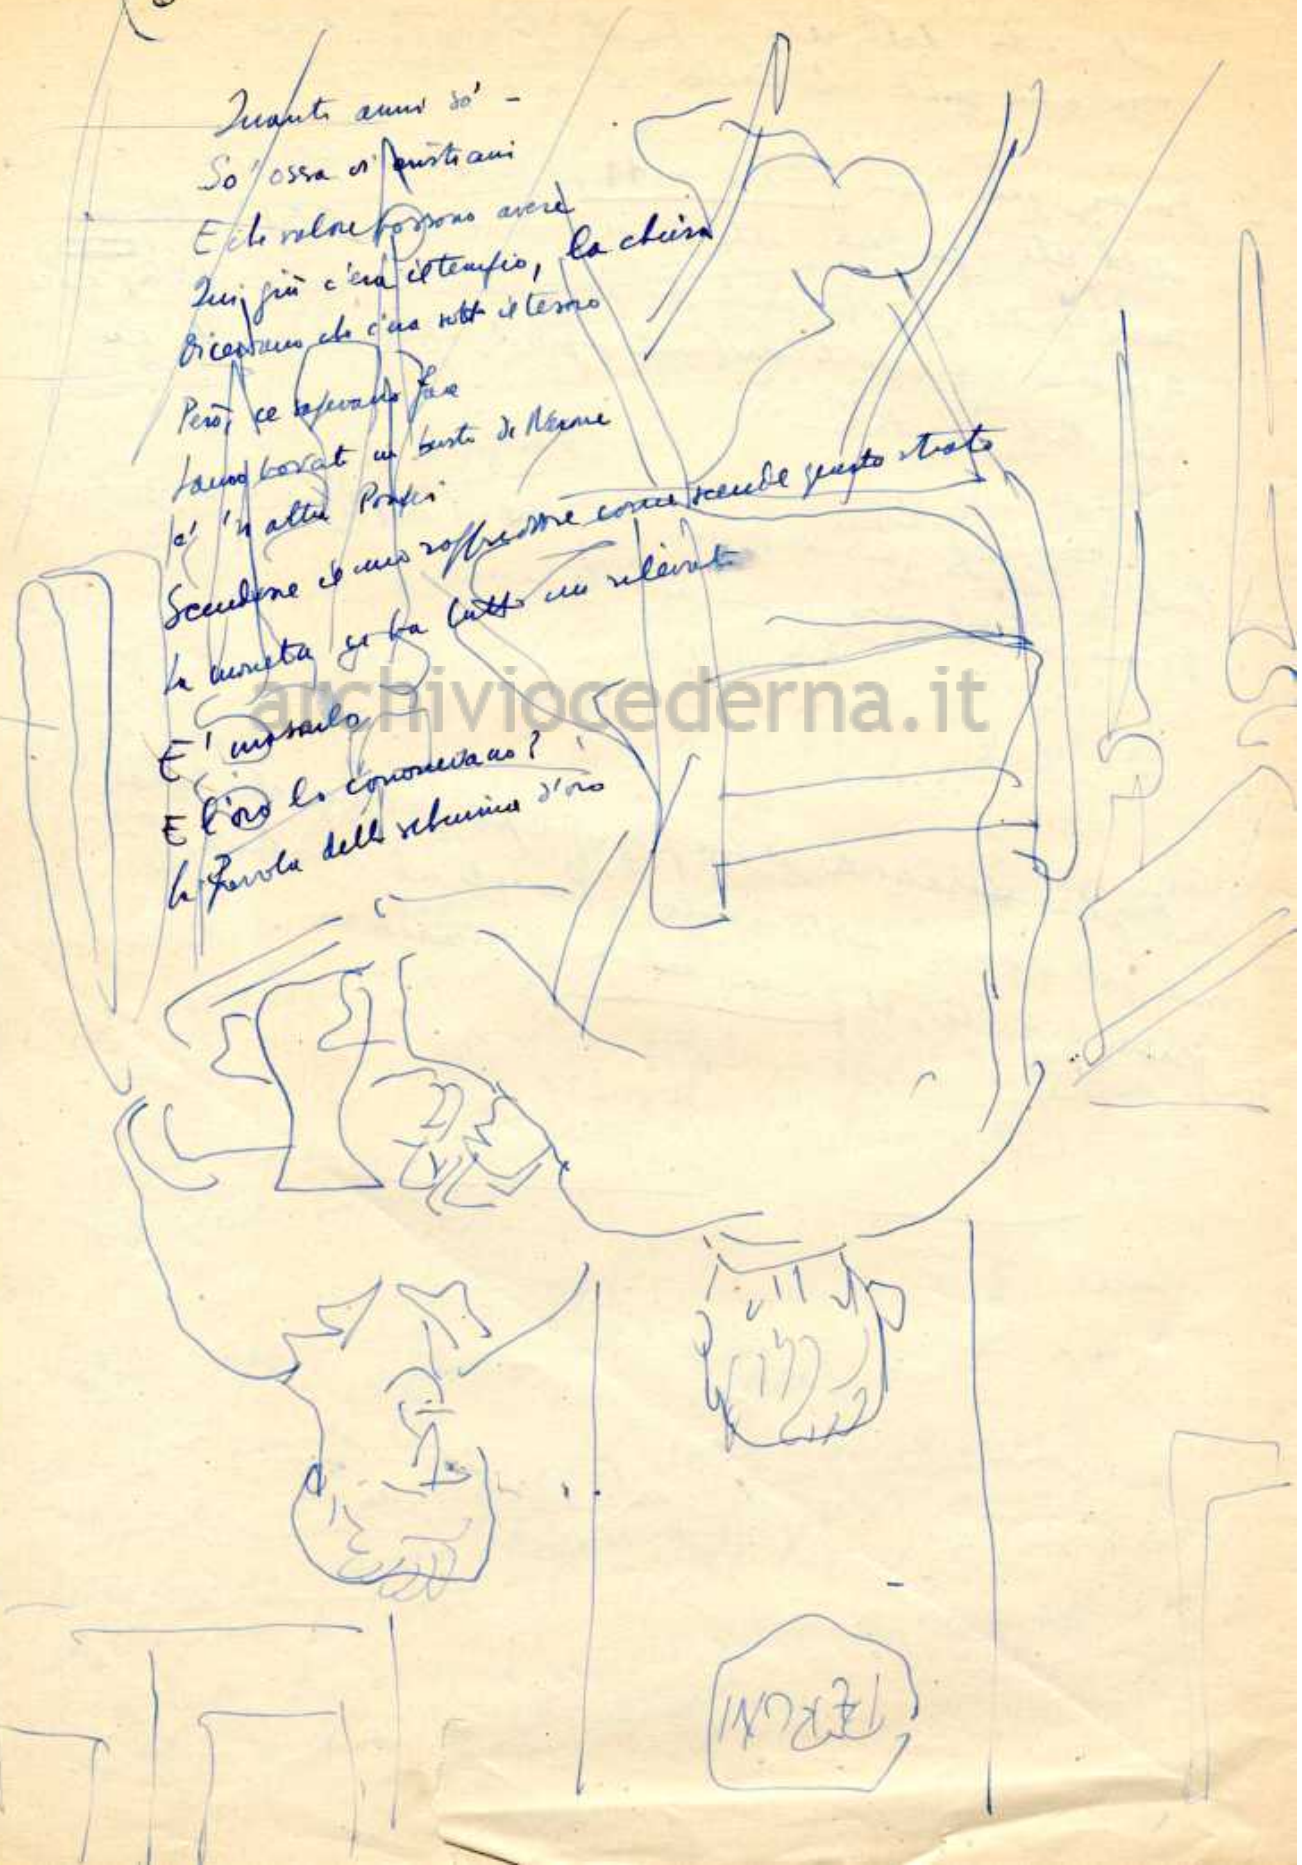 Quanti anni so' -
So' ossa di cristiani
E che valore possono avere
Qui giù c'era il tempio, la chiesa
Dicevano che c'era sotto il tesoro
Però, ce sapevano fa
hanno trovato un busto di Nerone
c'è 'n altra Pompei
Scendere il mio raffreddore come scende questo strato
La moneta ce ha tutto un
E' mosaico
E l'oro lo conoscevano?
La favola della d'oro
archiviocederna.it